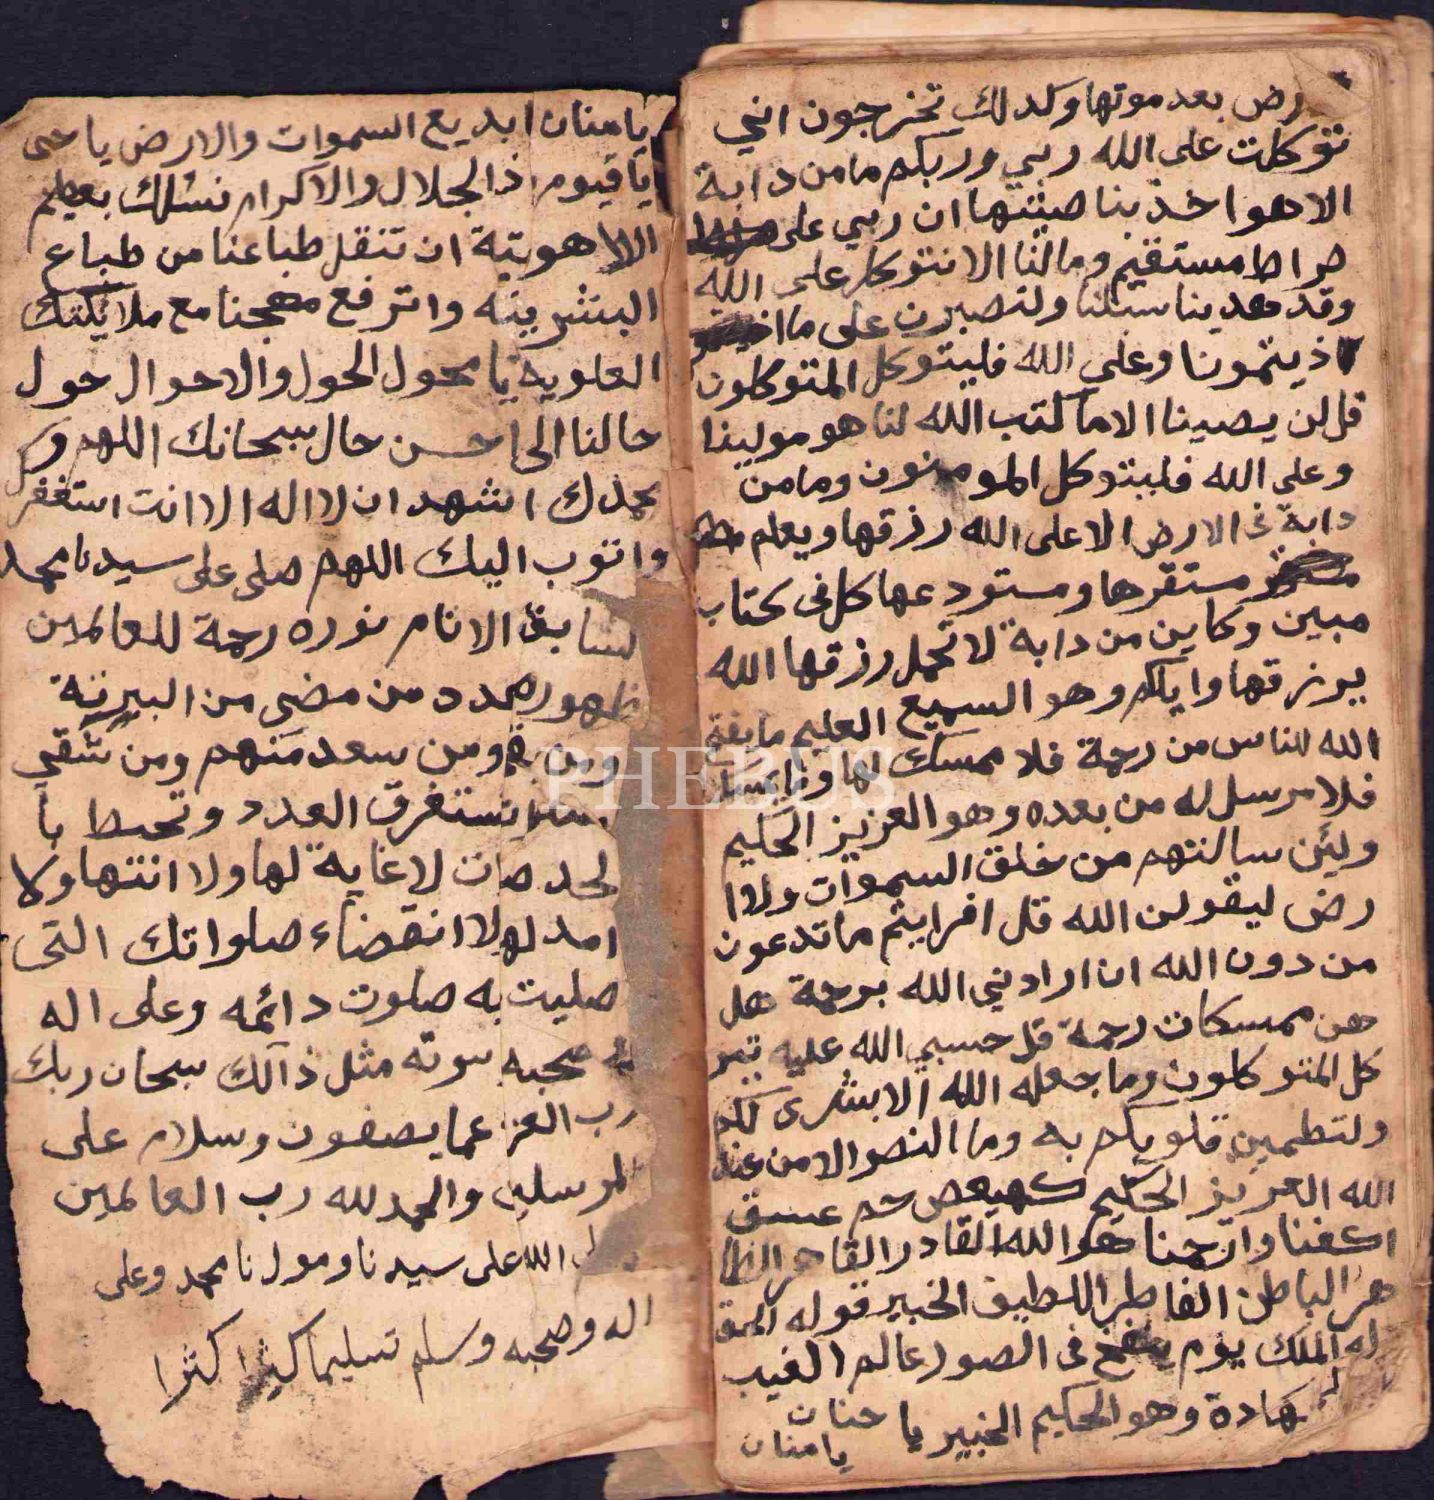 رض بعد موتها وكدلك تخرجون اني
توكلت على الله ربي وربكم مامن دابة
الاهو اخذ بنا صيتها ان ربي على
صراط مستقيم ومالنا الا نتوكل على الله
وقد هدينا سبلنا ولتصبرن على ما
اذيتمونا وعلى الله فليتوكل المتوكلون
قل لن يصيبنا الا ما كتب الله لنا هو مولينا
وعلى الله فليتوكل المومنون ومامن
دابة في الارض الا على الله رزقها ويعلم
مستقرها ومستودعها كل في كتاب
مبين وكاين من دابة لا تحمل رزقها الله
يرزقها واياكم وهو السميع العليم ما يفتح
الله للناس من رحمة فلا ممسك لها وما يمسك
فلا مرسل له من بعده وهو العزيز الحكيم
ولين سالتهم من خلق السموات ولا
رض ليقولن الله قل افرايتم ما تدعون
من دون الله ان ارادني الله برحمة هل
هن ممسكات رحمة قل حسبي الله عليه يتو
كل المتوكلون وما جعله الله الا بشرى لكم
ولتطمين قلوبكم به وما النصر الا من عند
الله العزيز الحكيم كهيعص حم عسق
اكفنا وارحمنا هو الله القادر القاهر الظا
هر الباطن الفاطر اللطيف الخبير قوله الحق
له الملك يوم ينفخ في الصور عالم الغيب
هادة وهو الحكيم الخبير يا حنان
يا منان
يا منان ابديع السموات والارض يا حى
يا قيوم اذ الجلال والاكرام نسئلك بعظيم
اللاهوتية ان تنقل طباعنا من طباع
البشرية واترفع مهجنا مع ملايكتك
العلوية يا محول الحول والاحوال حول
حالنا الى احسن حال سبحانك اللهم و
بحمدك اشهد ان لا اله الا انت استغفر
واتوب اليك اللهم صلى على سيدنا محمد
لسابق الانام نوره رحمة للعالمين
ظهوره عدد من مضى من البرية
ومن بقى ومن سعد منهم ومن شقي
تستغرق العدد وتحيط با
لحد صلات لا غاية لها ولا انتها ولا
امد لها ولا انقضاء صلواتك التى
صليت به صلوت دائمه وعلى اله
صحبه سوته مثل ذالك سبحان ربك
رب العز عما يصفون وسلام على
المرسلين والحمد لله رب العالمين
الله على سيدنا ومولانا محمد وعلى
اله وصحبه وسلم تسليما كثيرا كثرا
PHEBUS